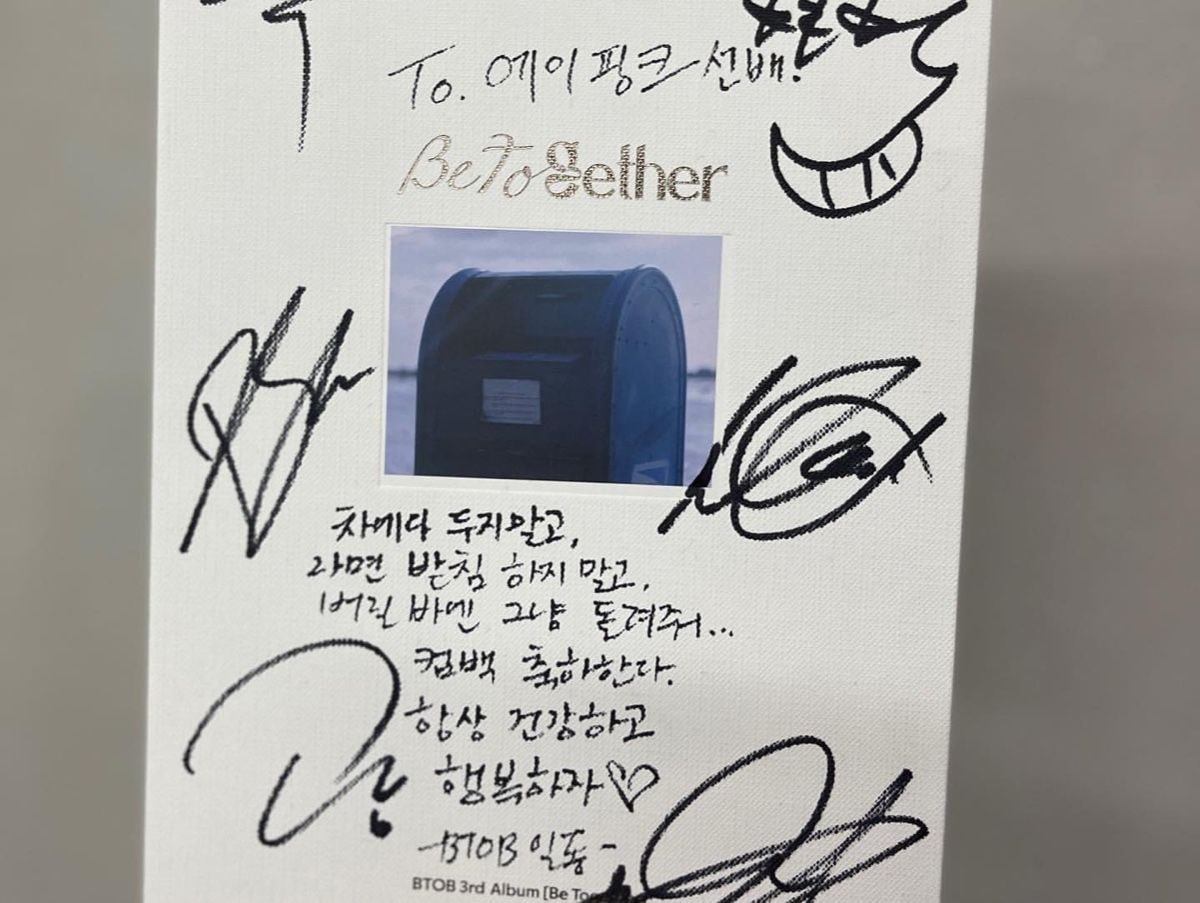 To. 에이핑크 선배.
BeTogether
차에다 두지말고,
라면 받침 하지 말고,
버릴 바엔 그냥 돌려줘...
컴백 축하한다.
항상 건강하고
행복하자♡
-BTOB 일동-
BTOB 3rd Album [Be To